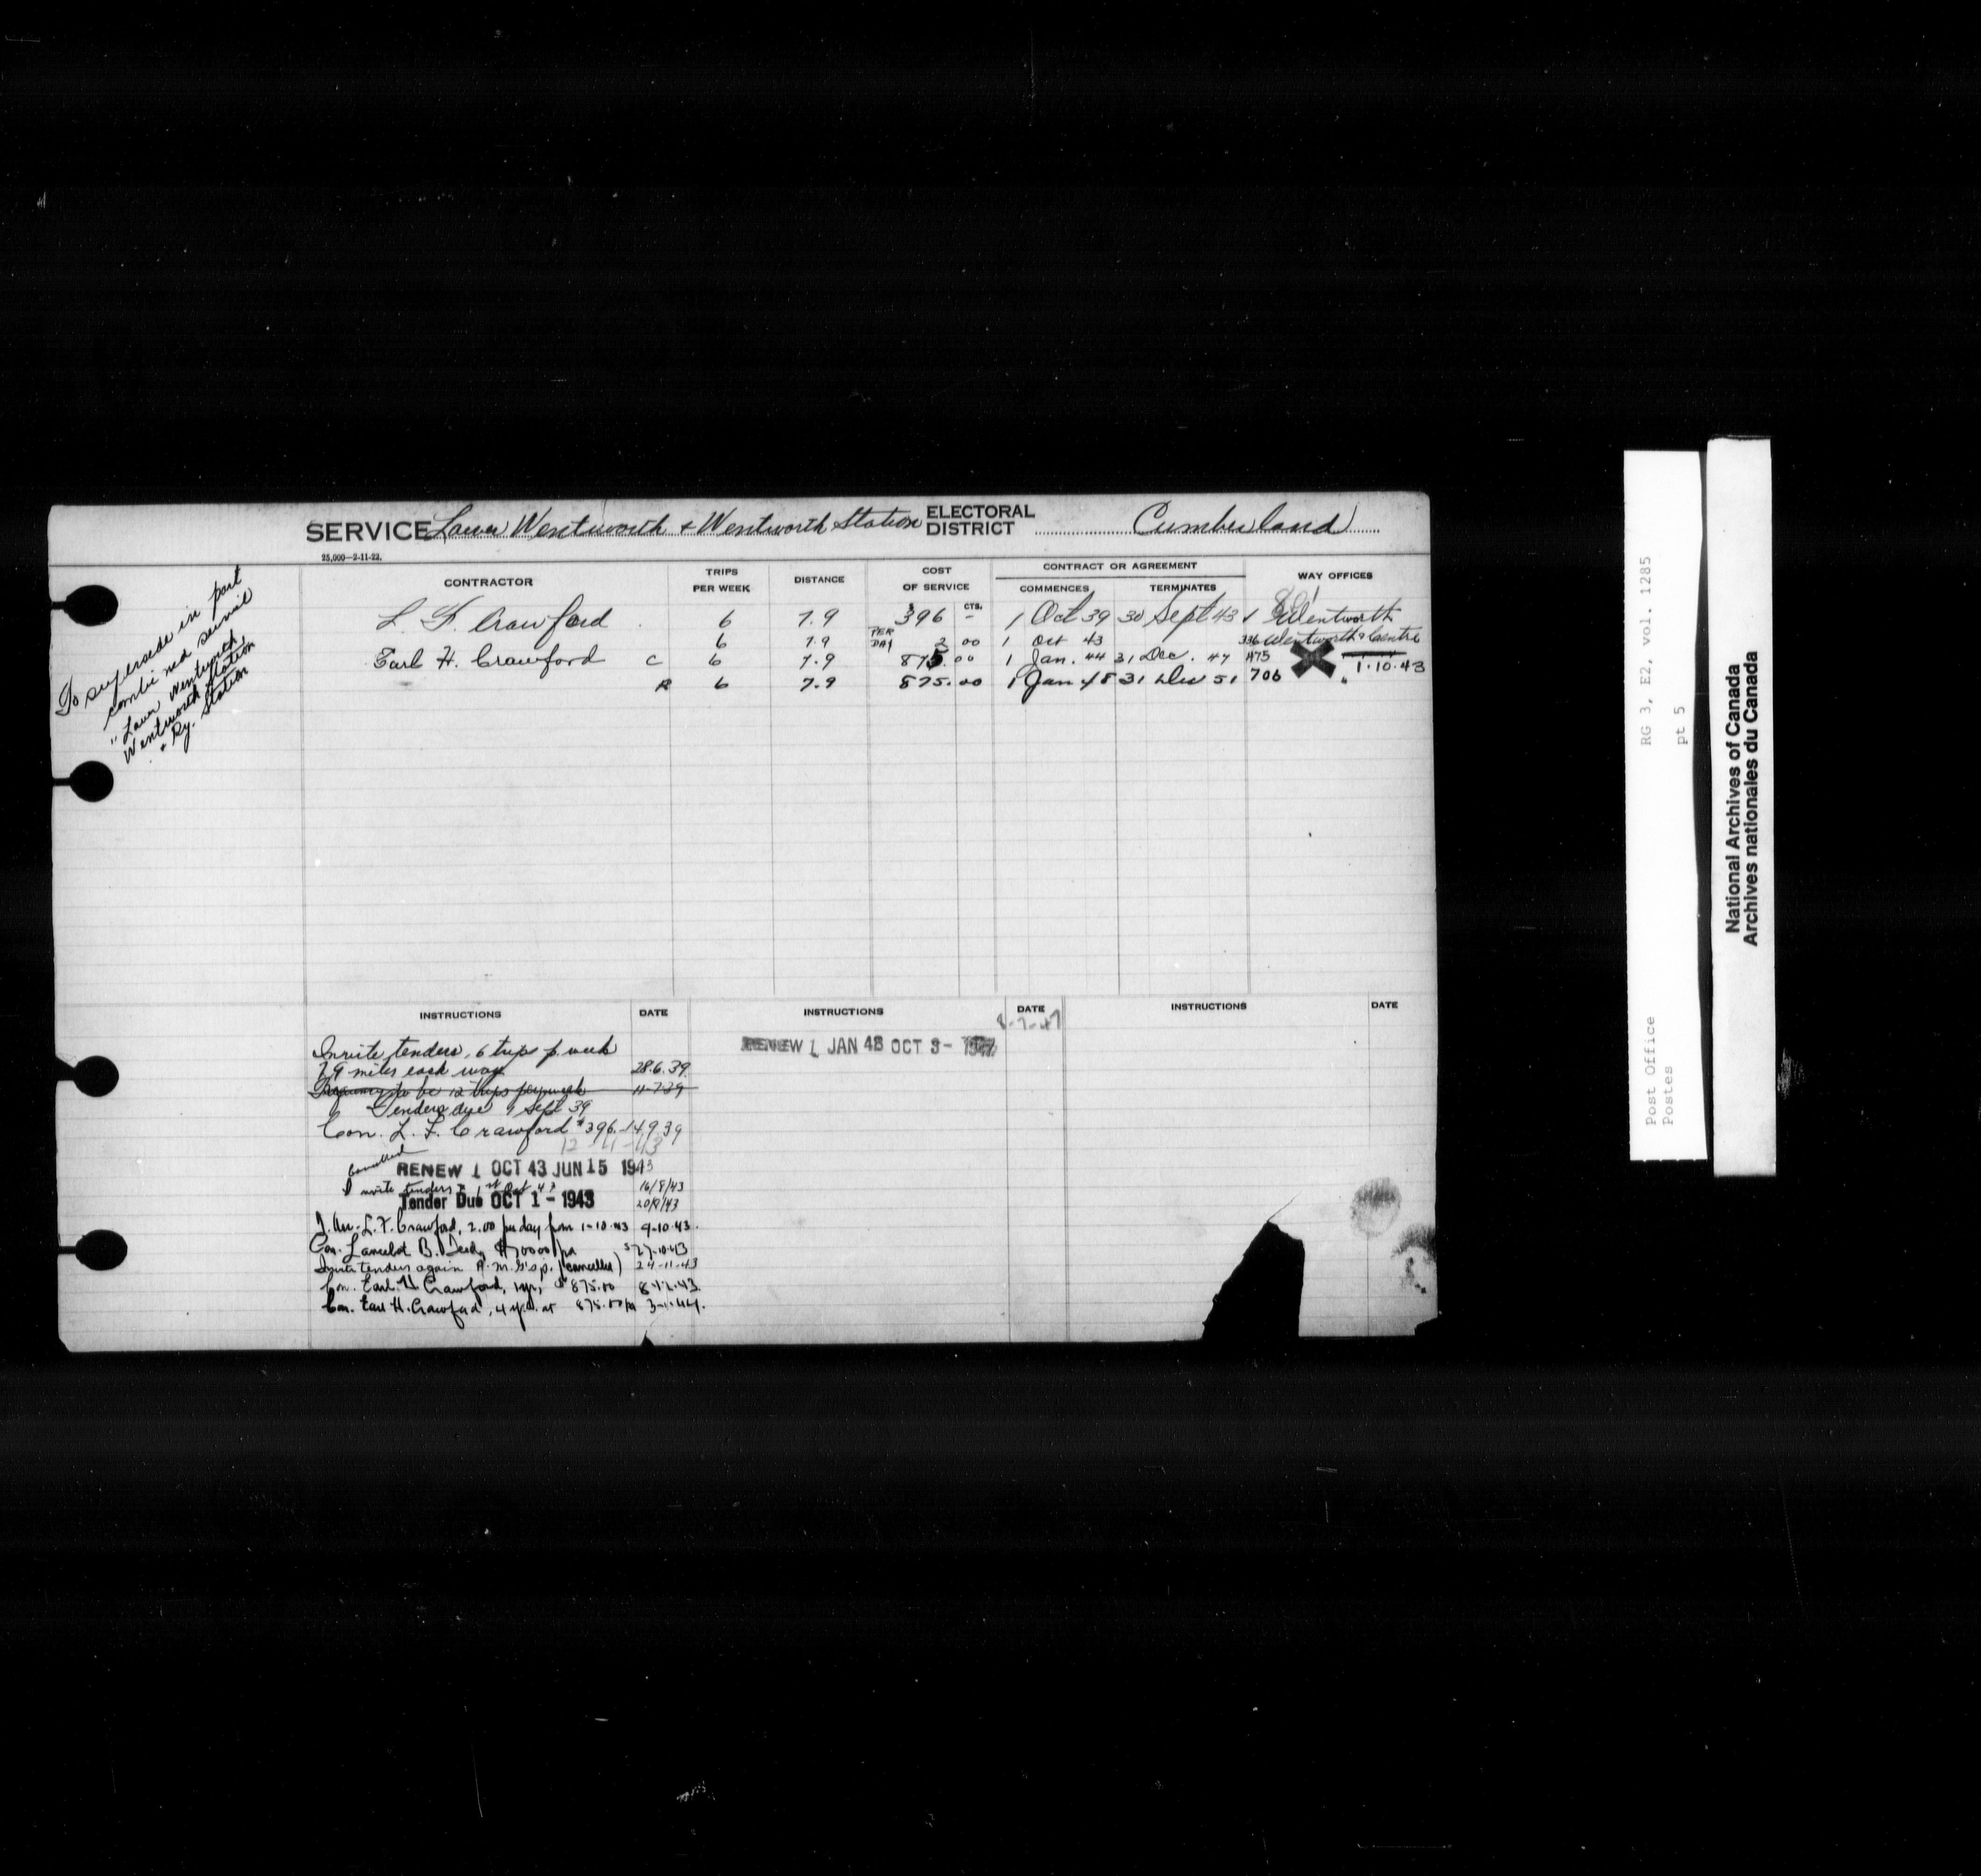 SERVICE Lower Wentworth & Wentworth Station ELECTORAL DISTRICT Cumberland
25,000—2-11-22.
To supersede in part
combined service
"Lower Wentworth,
Wentworth Station
& Ry. Station
CONTRACTOR TRIPS PER WEEK DISTANCE COST OF SERVICE CONTRACT OR AGREEMENT COMMENCES TERMINATES WAY OFFICES
CTS.
L. F. Crawford 6 7.9 $396 – 1 Oct 39 30 Sept 43 1 Wentworth
6 7.9 PER DAY 2 00 1 Oct 43 336 Wentworth Centre
Earl H. Crawford C 6 7.9 875.00 1 Jan. 44 31 Dec. 47 475 1.10.43
R 6 7.9 875.00 1 Jan 48 31 Dec 51 706 "
INSTRUCTIONS DATE INSTRUCTIONS DATE INSTRUCTIONS DATE
8-7-47
RENEW 1 JAN 48 OCT 3- 1947
Invite tenders, 6 trips p. week
7.9 miles each way 28.6.39
Frequency to be 12 trips per week 11-7-39
Tenders due 1 Sept 39
Con. L. F. Crawford $396.– 14.9.39
12-11-43
Cancelled
RENEW 1 OCT 43 JUN 15 1943
Invite tenders 1st Oct 43 16/8/43
Tender Due OCT 1 - 1943 20/8/43
L. F. Crawford, 2.00 per day from 1-10-43 9-10-43.
Con. Lancelot B. $700.00 pa 27-10-43
Invite tenders again P.M.G's p. (cancelled) 24-11-43
Con. Earl H. Crawford, 1 yr, $875.00 8-12-43.
Con. Earl H. Crawford, 4 yrs. at 875.00 pa 3-1-44.
RG 3, E2, vol. 1285
pt 5
Post Office
Postes
National Archives of Canada
Archives nationales du Canada